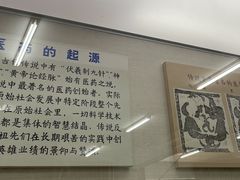 医药的起源
古传说中有“伏羲制九针”“神
“黄帝论经脉”始有医药之说，
说中最著名的医药创始者。实际
原始社会发展中特定阶段整个先
在原始社会里，一切科学技术
都是集体的智慧结晶，传说反
祖先们在长期艰苦的实践中创
英雄业绩的景仰与